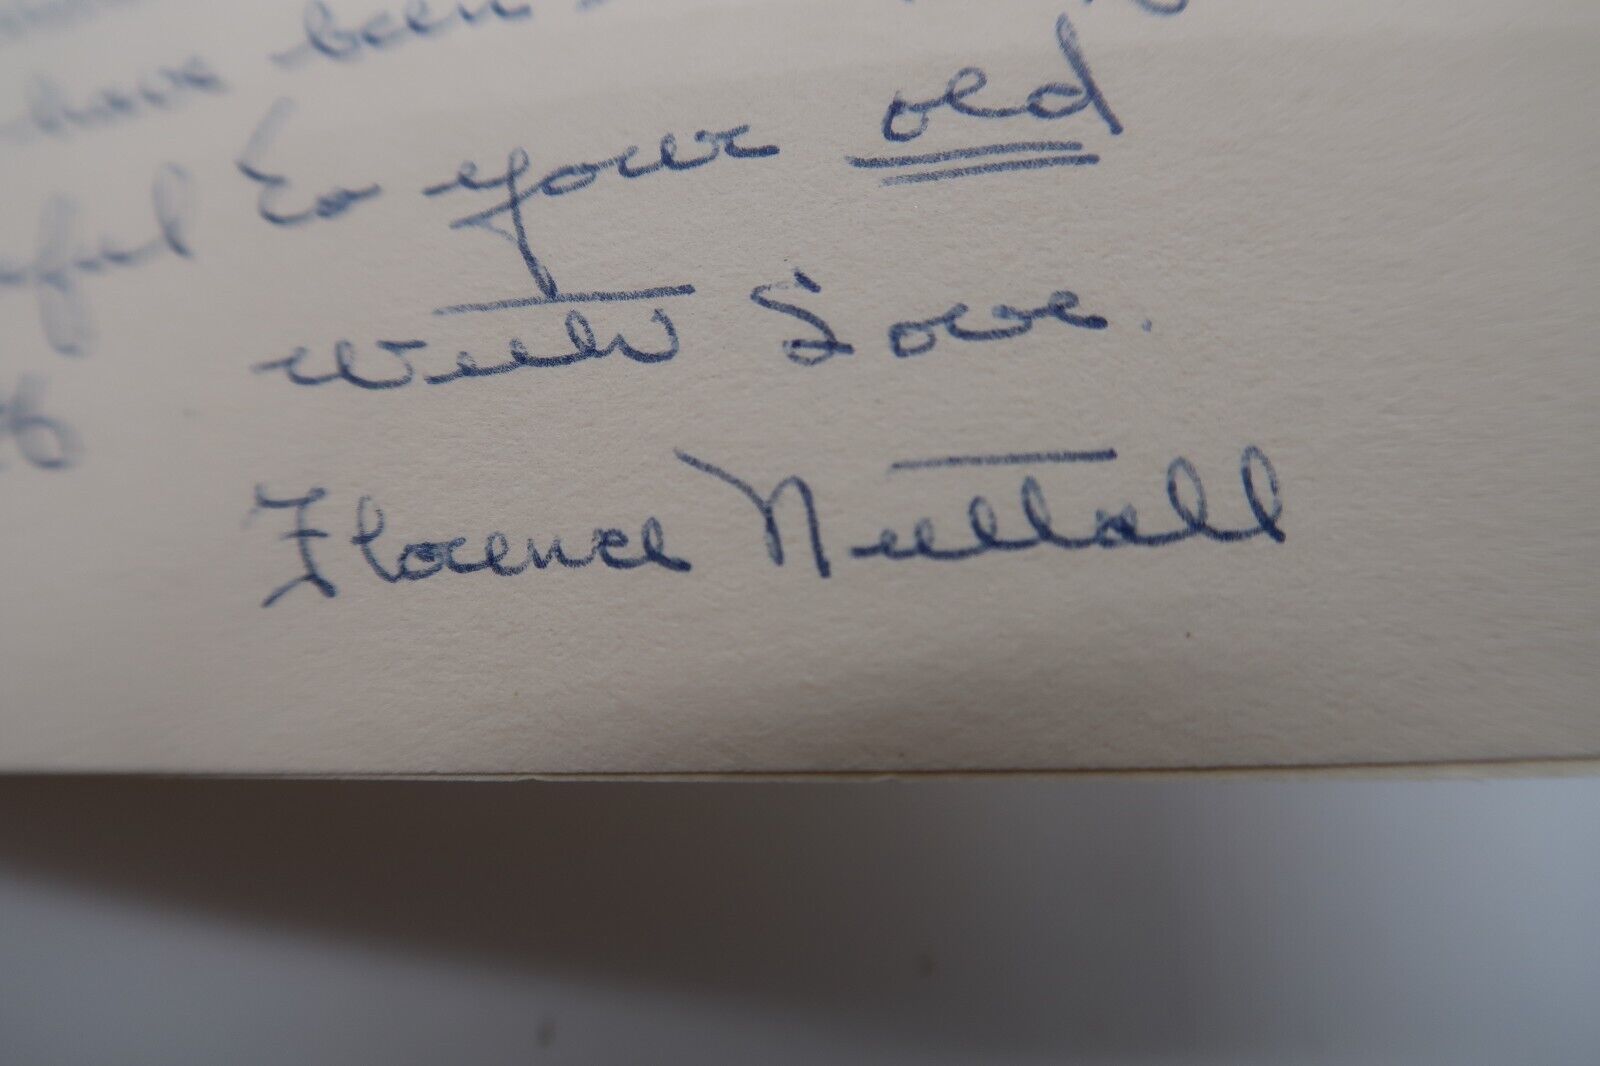 have been
to your old
with Love.
Florence Nuttall